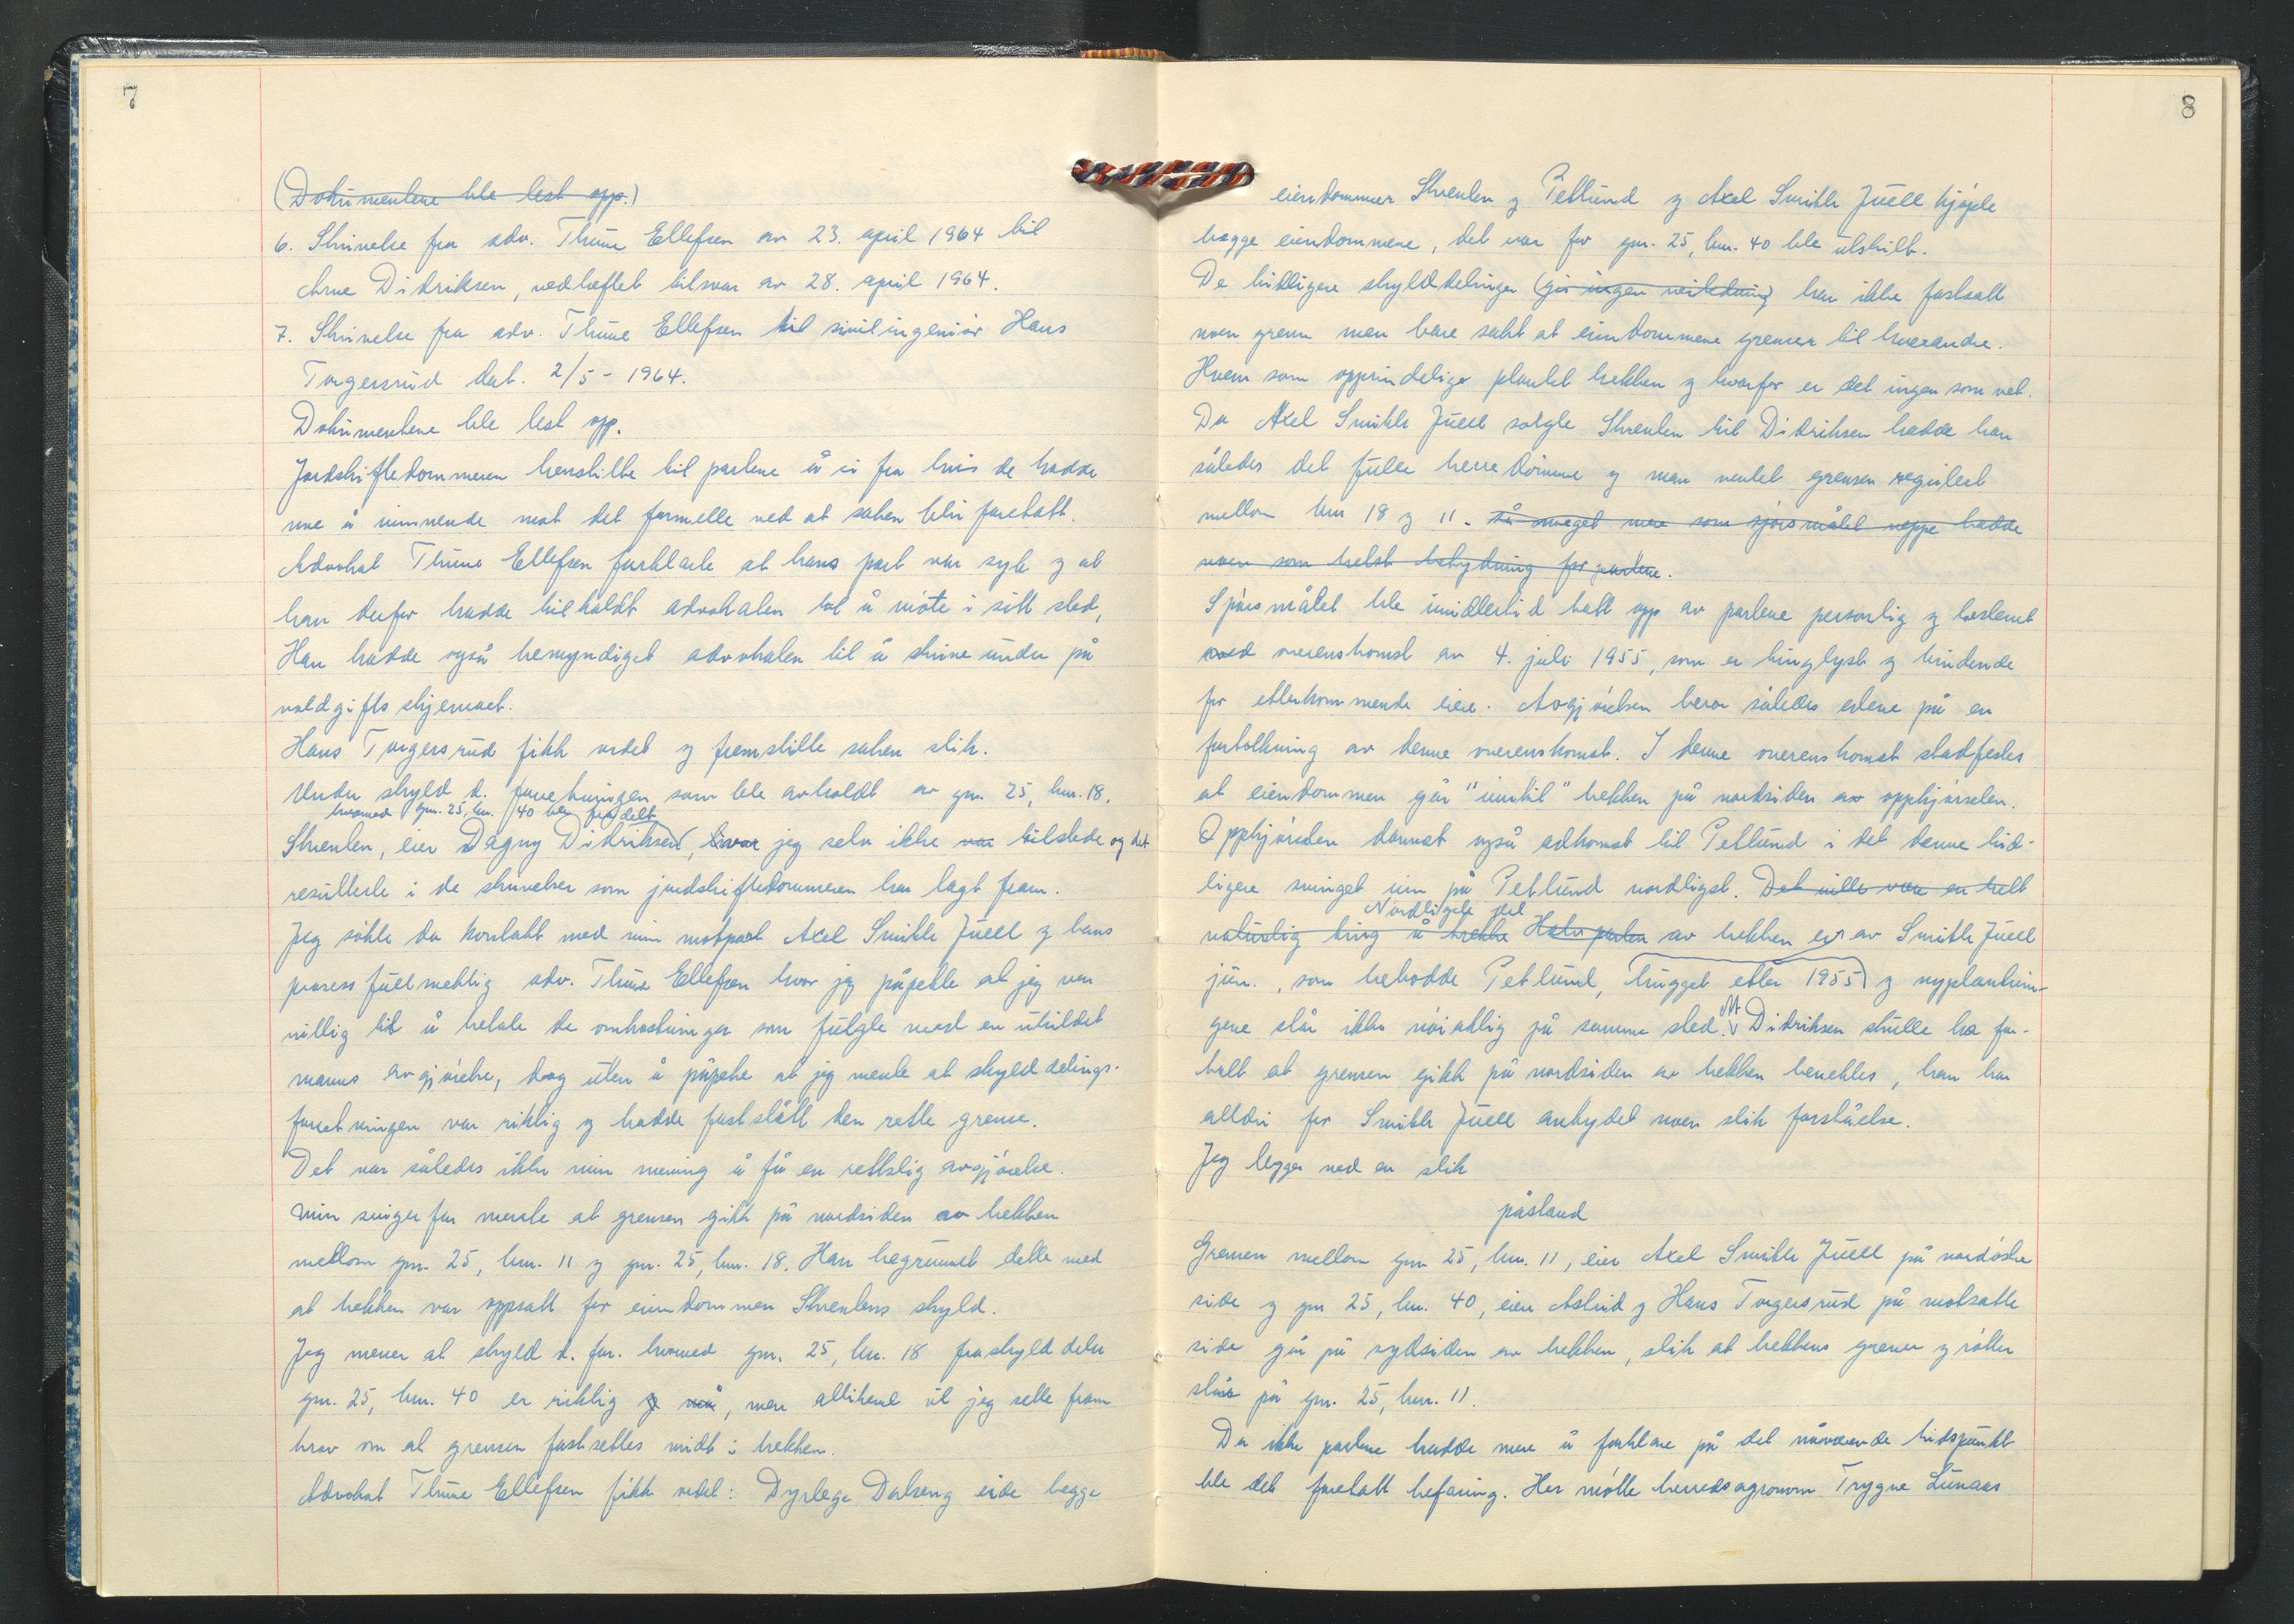 7
(Dokumentene ble lest opp.)
6. Skrivelse fra adv. Thune Ellefsen av 23. april 1964 til
Arne Didriksen, vedheftet tilsvar av 28. april 1964.
7. Skrivelse fra adv. Thune Ellefsen til sivilingeniør Hans
Torgersrud dat. 2/5 - 1964.
Dokumentene ble lest opp.
Jordskiftedommeren henstillte til partene å si fra hvis de hadde
noe å innvende mot det formelle ved at saken blir foretatt.
Advokat Thune Ellefsen forklarte at hans part var syk og at
han derfor hadde tilkaldt advokaten til å møte i sitt sted,
Han hadde også bemyndiget advokaten til å skrive under på
voldgiftsskjemaet.
Hans Torgersrud fikk ordet og fremstillte saken slik.
Under skyld d. forretningen som ble avholdt av gnr. 25, bnr. 18,
hvorved gnr. 25, bnr. 40 ble fradelt
Skrenten, eier Dagny Didriksen, hvor jeg selv ikke var tilstede og det
resulterte i de skrivelser som jordskiftedommeren har lagt fram.
Jeg søkte da kontakt med min motpart Axel Smith Juell og hans
prosessfullmektig adv. Thune Ellefsen hvor jeg påpekte at jeg var
villig til å betale de omkostninger som fulgte med en uhildet
manns avgjørelse, dog uten å påpeke at jeg mente at skylddelings-
forretningen var riktig og hadde fastslått den rette grense.
Det var således ikke min mening å få en rettslig avgjørelse.
Min svigerfar mente at grensen gikk på nordsiden av hekken
mellom gnr. 25, bnr. 11 og gnr. 25, bnr. 18. Han begrunnet dette med
at hekken var oppsatt for eiendommen Skrentens skyld.
Jeg mener at skyld d. forr. hvorved gnr. 25, bnr. 18 fraskylddeler
gnr. 25, bnr. 40 er riktig og må, men allikevel vil jeg sette fram
krav om at grensen fastsettes midt i hekken.
Advokat Thune Ellefsen fikk ordet: Dyrlege Dalseng eide begge
8
eiendommer Skrenten og Petlund og Axel Smith Juell kjøpte
begge eiendommene, det var før gnr. 25, bnr. 40 ble utskilt.
De tidligere skylddelinger (gir ingen veiledning) har ikke fastsatt
noen grense men bare sakt at eiendommene grenser til hverandre.
Hvem som opprindelige plantet hekken og hvorfor er det ingen som vet.
Da Axel Smith Juell solgte Skrenten til Didriksen hadde han
således det fulle herredømme og man ventet grensen regulert
mellom bnr 18 og 11. så meget mere som spørsmålet neppe hadde
noen som helst betydning for partene.
Spørsmålet ble imidlertid tatt opp av partene personlig og bestemt
ved overenskomst av 4. juli 1955, som er tinglyst og bindende
for etterkommende eiere. Avgjørelsen beror således alene på en
fortolkning av denne overenskomst. I denne overenskomst stadfestes
at eiendommen går "inntil" hekken på nordsiden av oppkjørselen.
Oppkjørselen dannet også adkomst til Petlund i det denne tid-
ligere svinget inn på Petlund nordligst. Det ville være en helt
Nordligste del
naturlig ting å trekke Halvparten av hekken er av Smith Juell
jun., som bebodde Petlund, hugget etter 1955 og nyplantnin-
gene står ikke nøiaktig på samme sted. At Didriksen skulle ha for-
talt at grensen gikk på nordsiden av hekken benektes, han har
alldri for Smith Juell antydet noen slik forståelse.
Jeg legger ned en slik
påstand
Grensen mellom gnr 25, bnr. 11, eier Axel Smith Juell på nordøstre
side og gnr 25, bnr. 40, eiere Astrid og Hans Torgersrud på motsatte
side går på sydsiden av hekken, slik at hekkens grener og røtter
står på gnr. 25, bnr. 11.
Da ikke partene hadde mere å forklare på det nåværende tidspunkt
ble det foretatt befaring. Her møtte herredsagronom Trygve Lunaas